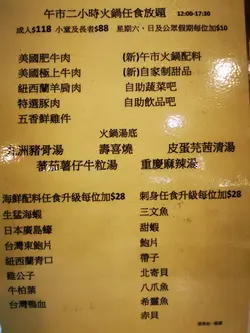 午市二小時火鍋任食放題 12:00-17:30
成人$118 小童及長者$88 星期六、日及公眾假期每位加$10
美國肥牛肉
美國極上牛肉
紐西蘭羊肩肉
特選豚肉
五香鮮雞件
(新)午市火鍋配料
(新)自家制甜品
自助蔬菜吧
自助飲品吧
火鍋湯底
九洲豬骨湯 壽喜燒 皮蛋芫茜清湯
蕃茄薯仔牛粒湯 重慶麻辣湯
海鮮配料任食升級每位加$28
生猛海蝦
日本廣島蠔
台灣東鮑片
紐西蘭青口
雞公子
牛柏葉
台灣鴨血
刺身任食升級每位加$28
三文魚
甜蝦
鮑片
帶子
北寄貝
八爪魚
希靈魚
赤貝